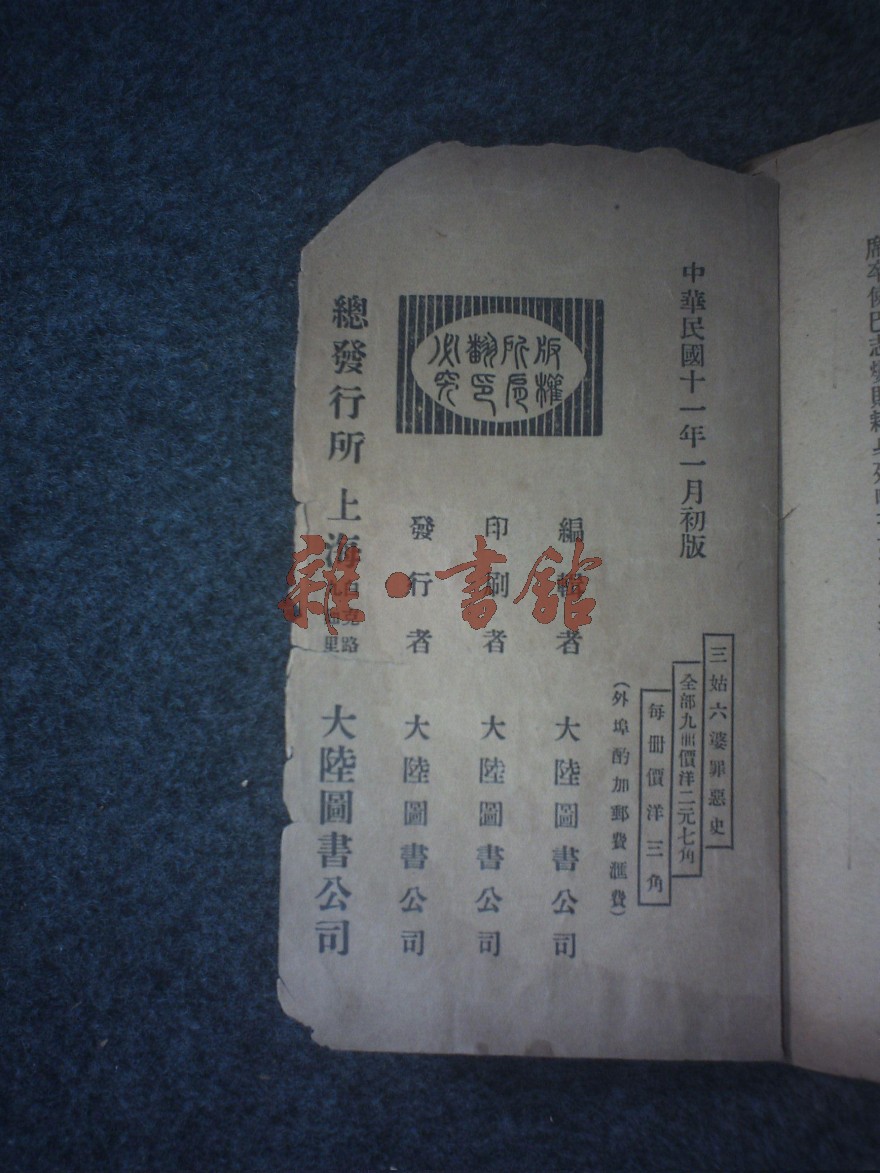 中華民國十一年一月初版
三姑六婆罪惡史
全部九冊價洋二元七角
每冊價洋三角
(外埠酌加郵費滙費)
版權
所有
翻印
必究
編輯者 大陸圖書公司
印刷者 大陸圖書公司
發行者 大陸圖書公司
總發行所 上海 大陸圖書公司
雜·書館